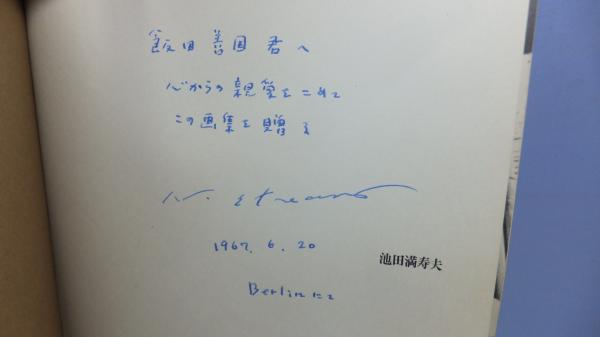 飯田善国君へ
心からの親愛をこめて
この画集を贈る
1967. 6. 20
池田満寿夫
Berlinにて